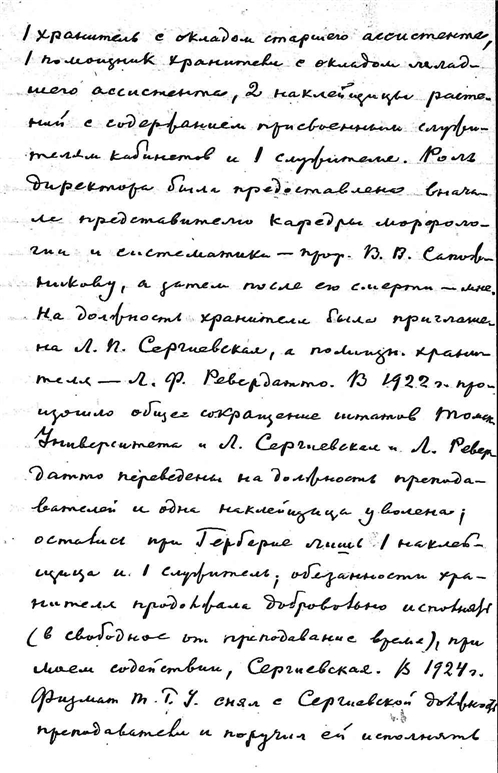 1 хранитель с окладом старшего ассистента,
1 помощник хранителя с окладом млад-
шего ассистента, 2 наклейщицы расте-
ний с содержанием присвоенным служи-
телям кабинетов и 1 служителя. Роль
директора была предоставлена внача-
ле представителю кафедры морфоло-
гии и систематики — проф. В. В. Сапож-
никову, а затем после его смерти — мне.
На должность хранителя была приглаше-
на Л. П. Сергиевская, а помощн. храни-
теля — Л. Ф. Ревердатто. В 1922 г. про-
изошло общее сокращение штатов Томск.
Университета и Л. Сергиевская и Л. Ревер
датто переведены на должность препода-
вателей и одна наклейщица уволена;
остались при Гербарие лишь 1 наклей-
щица и 1 служитель; обязанности хра-
нителя продолжала добровольно исполнять
(в свободное от преподавания время), при
моем содействии, Сергиевская. В 1924 г.
Физмат Т. Г. У. снял с Сергиевской должность
преподавателя и поручил ей исполнять